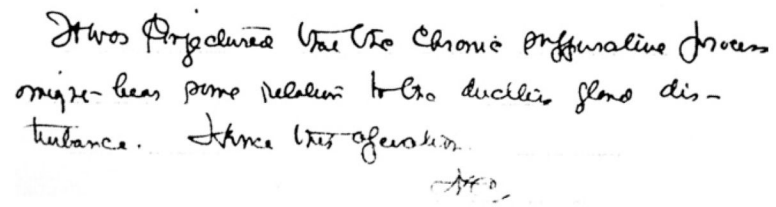 It was conjectured that the chronic suppurative process
might bear some relation to the ductless gland dis-
turbance. Hence this operation